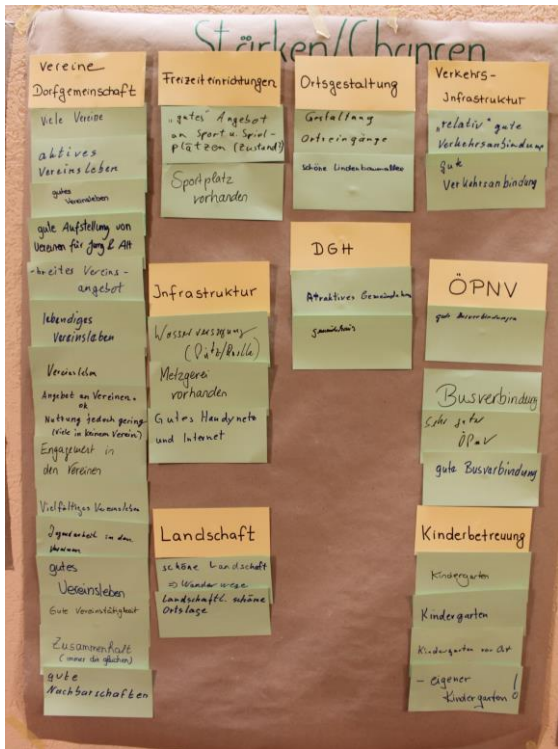 Stärken/Chancen
Vereine
Dorfgemeinschaft
Viele Vereine
aktives
Vereinsleben
gutes
Vereinsleben
gute Aufstellung von
Vereinen für Jung & Alt
- breites Vereins-
angebot
lebendiges
Vereinsleben
Vereinsleben
Angebot an Vereinen
ok
Nutzung jedoch gering
(viele in keinem Verein)
Engagement in
den Vereinen
Vielfältiges Vereinsleben
Jugendarbeit in den
Vereinen
gutes
Vereinsleben
Gute Vereinstätigkeit
Zusammenhalt
(immer die gleichen)
gute
Nachbarschaften
Freizeiteinrichtungen
"gutes" Angebot
an Sport u. Spiel-
plätzen (Zustand?)
Sportplatz
vorhanden
Infrastruktur
Wasserversorgung
Metzgerei
vorhanden
Gutes Handynetz
und Internet
Landschaft
schöne Landschaft
=> Wanderwege
Landschaftl. schöne
Ortslage
Ortsgestaltung
Gestaltung
Ortseingänge
schöne Lindenbaumallee
DGH
Attraktives
Verkehrs-
Infrastruktur
"relativ" gute
Verkehrsanbindung
gute
Verkehrsanbindung
ÖPNV
gute Busverbindungen
Busverbindung
Sehr guter
ÖPNV
gute Busverbindung
Kinderbetreuung
Kindergarten
Kindergarten
Kindergarten vor Ort
- eigener
Kindergarten!